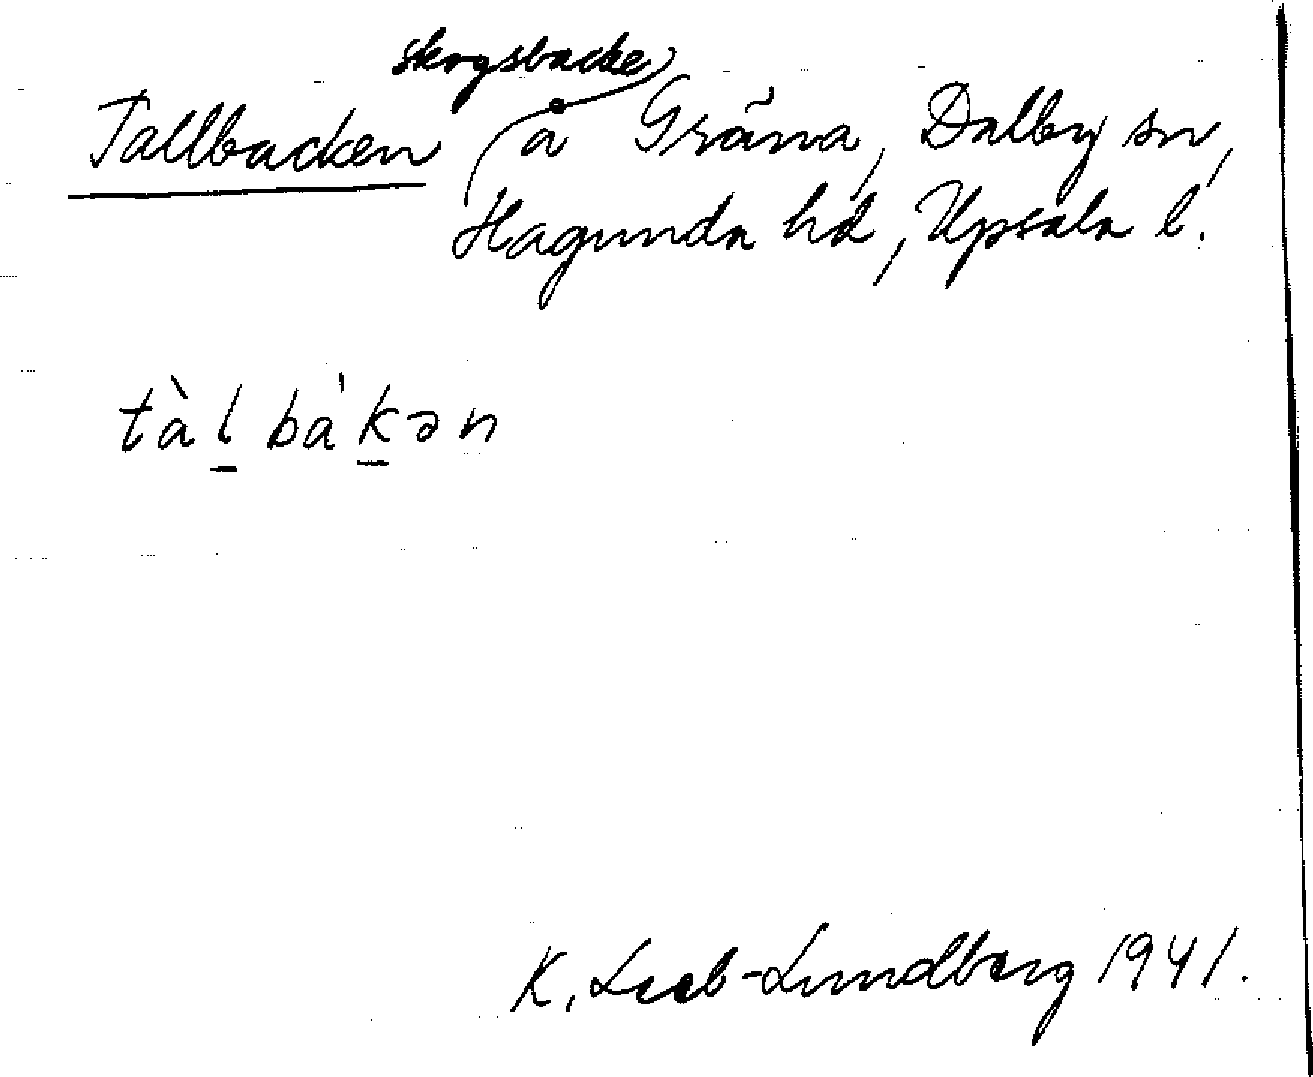 skogsbacke
Tallbacken å Gräna, Dalby sn,
Hagunda hd, Upsala l.
tàl bà'kən
K. Leeb-Lundberg 1941.